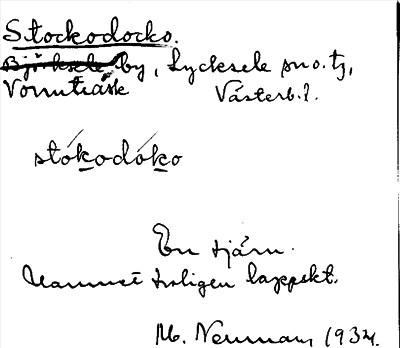 Stockodocko.
Björksele by, Lycksele sn o. tg,
Vormträsk Västerb. l.
stókodóko
En tjärn.
Namnet troligen lappskt.
M. Neuman 1934.